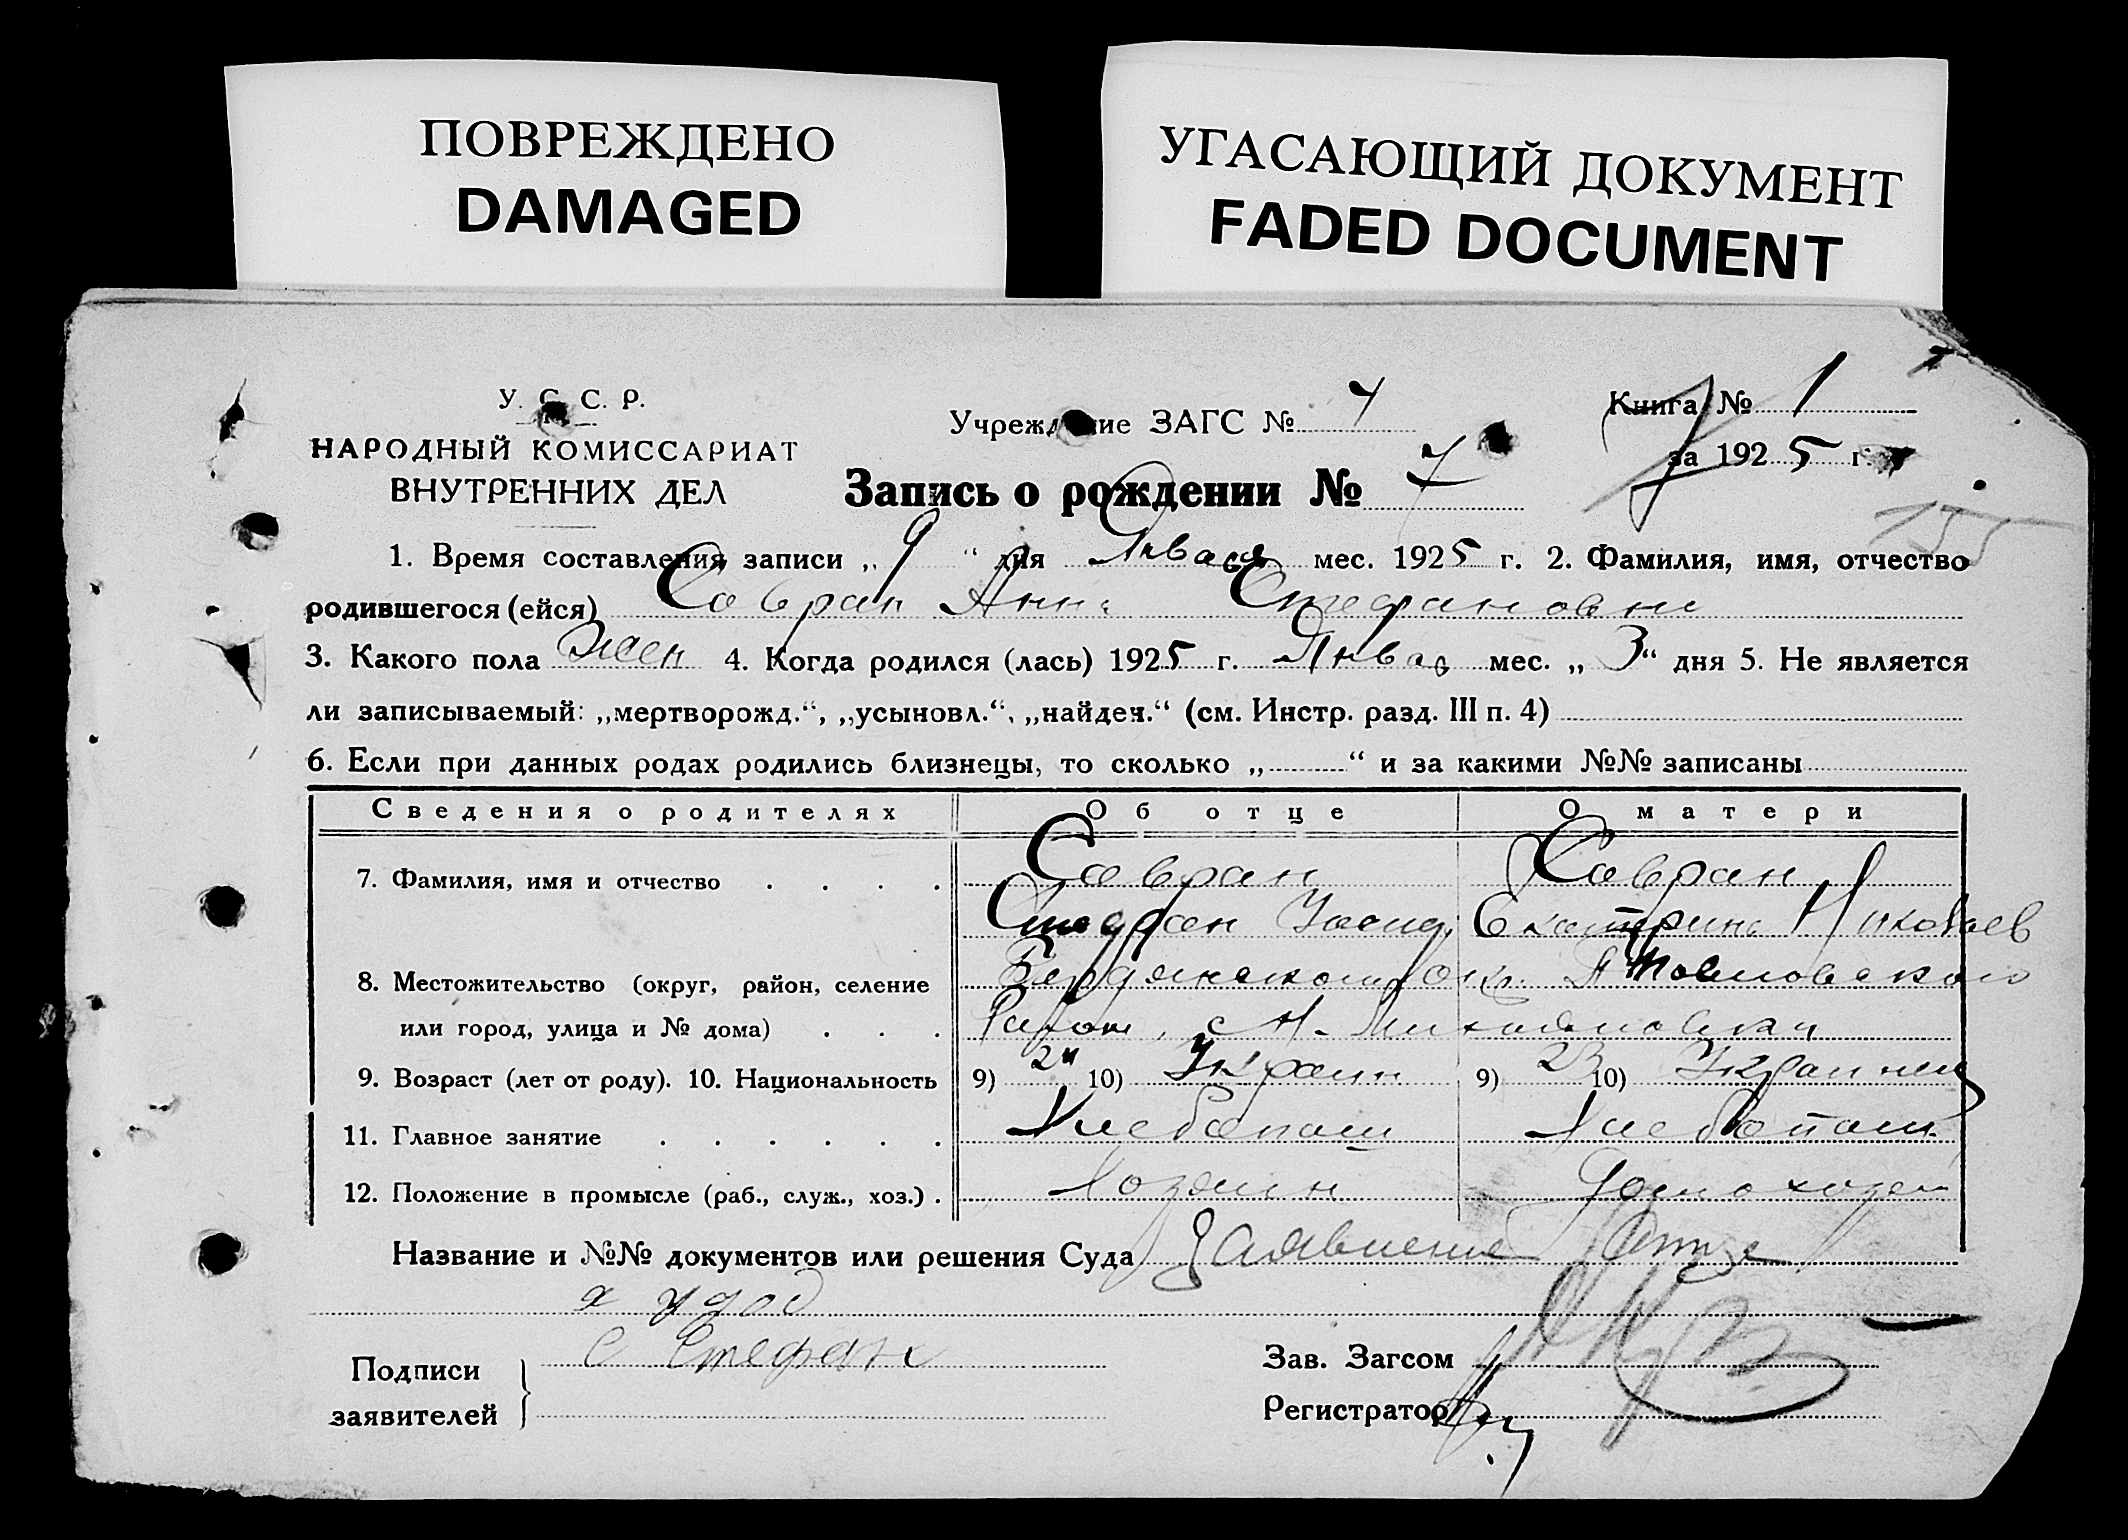 ПОВРЕЖДЕНО
DAMAGED
УГАСАЮЩИЙ ДОКУМЕНТ
FADED DOCUMENT
У. С. С. Р.
НАРОДНЫЙ КОМИССАРИАТ
ВНУТРЕННИХ ДЕЛ
Учреждение ЗАГС №
Книга № 1
за 1925 г.
Запись о рождении № 7
155
1. Время составления записи „ 9 “ дня Января мес. 1925 г. 2. Фамилия, имя, отчество
родившегося (ейся) Савран Анна Стефановна
3. Какого пола жен 4. Когда родился (лась) 1925 г. Января мес. „ 3 “ дня 5. Не является
ли записываемый: „мертворожд.“, „усыновл.“, „найден.“ (см. Инстр. разд. III п. 4)
6. Если при данных родах родились близнецы, то сколько „ “ и за какими №№ записаны
Сведения о родителях Об отце О матери
7. Фамилия, имя и отчество Савран Савран
Стефан Екатерина Николаев
8. Местожительство (округ, район, селение Бердянского Окр.
или город, улица и № дома) Район, с. Н.-Михайловка
9. Возраст (лет от роду). 10. Национальность 9) 24 10) Украин 9) 23 10) Украинец
11. Главное занятие Хлебопаш Хлебопаш.
12. Положение в промысле (раб., служ., хоз.) Хозяин Домохозяй
Название и №№ документов или решения Суда Заявление Отца
и удод
Подписи заявителей С Стефан
Зав. Загсом
Регистратор